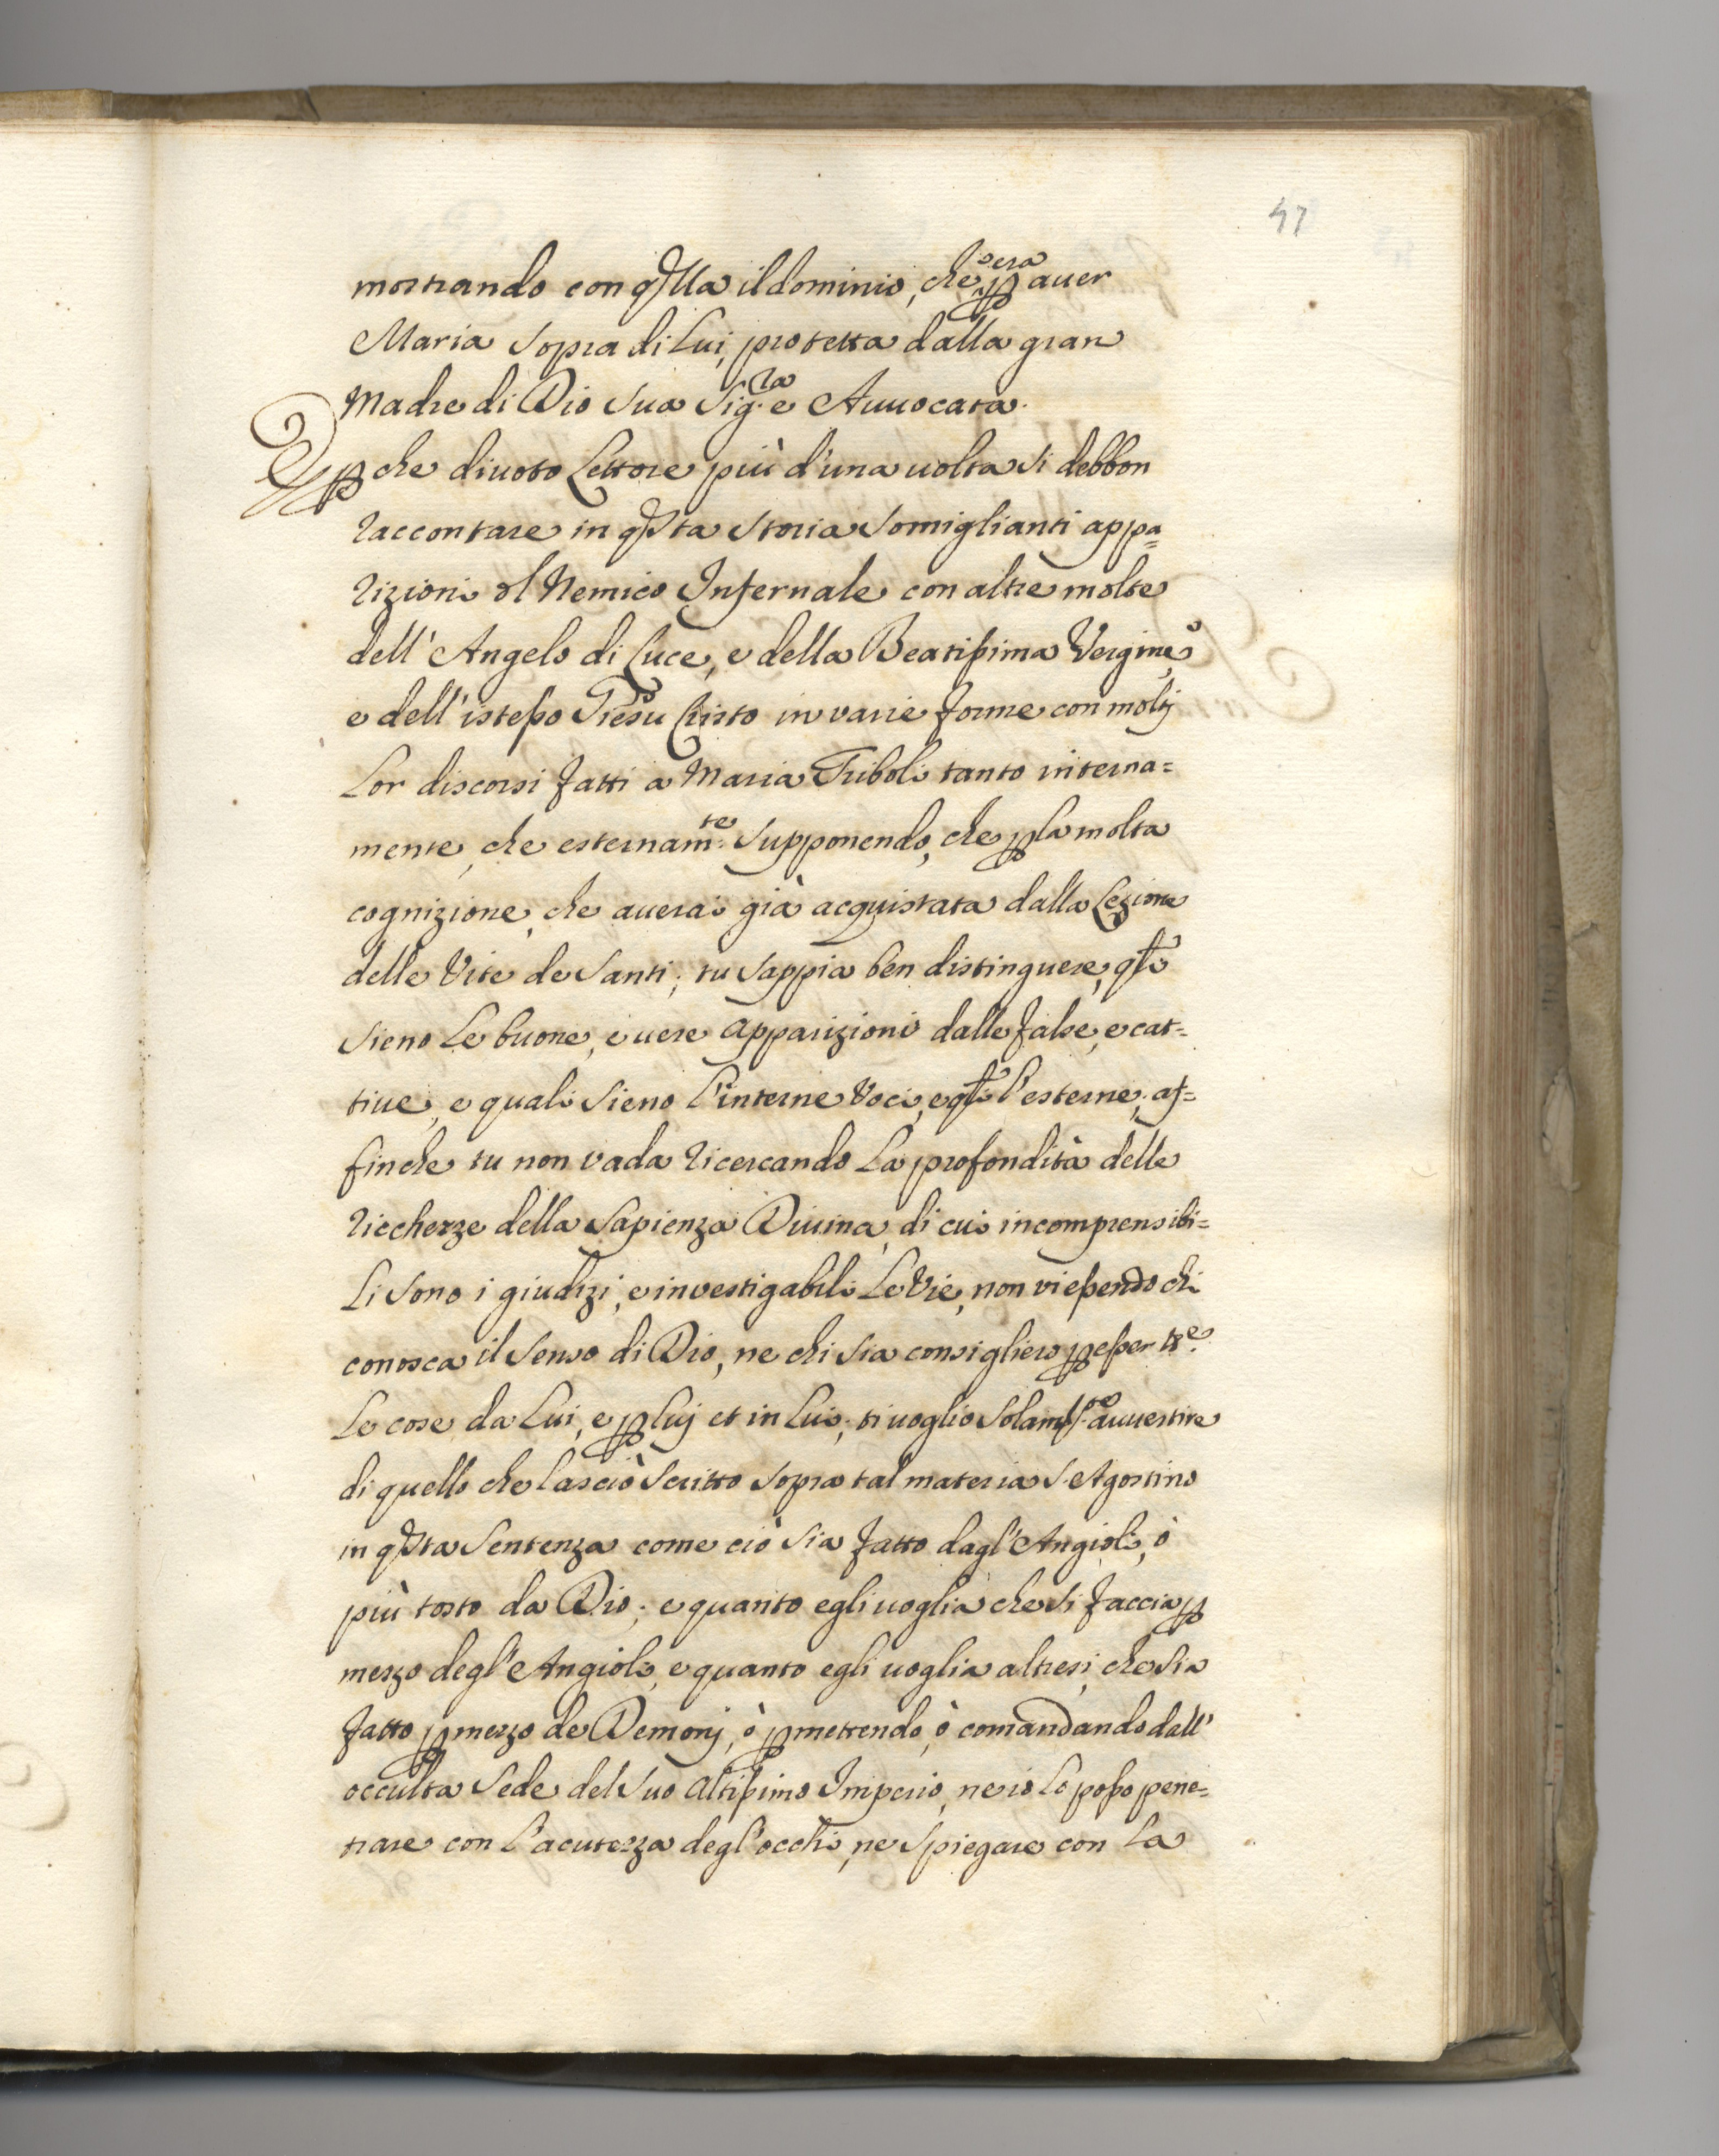 47
mostrando con qlla il dominio, che era ꝑ auer
Maria Sopra di Lui, protetta dalla gran
Madre di Dio Sua Sig.ra e Auuocata.
E ꝑche diuoto Lettore più d'una uolta si debbon
raccontare in qsta Storia Somiglianti appa=
rizioni dl Nemico Infernale con altre molte
dell'Angelo di Luce, e della Beatissima Vergine,
e dell'istesso Giesù Cristo in varie forme con moltj
Lor discorsi fatti a Maria Triboli tanto interna=
mente, che esternam.te Supponendo, che ꝑ la molta
cognizione, che auerai già acquistata dalla Lezione
delle Vite de Santi; tu Sappia ben distinguere, qli
Sieno Le buone, e uere apparizioni dalle false, e cat=
tiue, e quali Sieno l'interne Voci, e qli l'esterne; af=
finche tu non vada ricercando La profondità delle
ricchezze della Sapienza Diuina, di cui incomprensibi=
Li Sono i giudizi, e investigabili Le Vie, non vi essendo chi
conosca il Senso di Dio, ne chi Sia consigliero ꝑ esser tte.
Le cose da Lui, e ꝑ Luj et in Lui; ti uoglio Solam.te auuertire
di quello che lasciò Scritto Sopra tal materia S. Agostino
in qsta Sentenza come ciò Sia fatto dagl'Angioli, ò
più tosto da Dio; e quanto egli uoglia che si faccia ꝑ
mezzo degl'Angioli, e quanto egli uoglia altresi, che Sia
fatto ꝑ mezzo de Demonj, ò ꝑmettendo, ò comandando dall'
occulta Sede del Suo altissimo Imperio, ne io Lo posso pene=
trare con l'acutezza degl'occhi, ne Spiegare con La